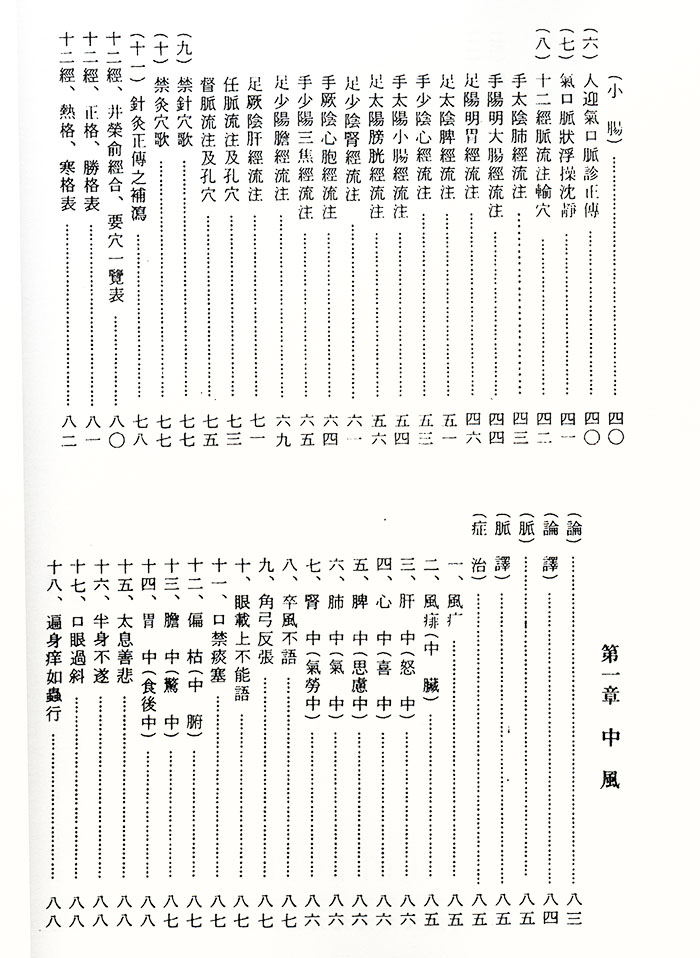 (小 腸)……四〇
(六)人迎氣口脈診正傳……四〇
(七)氣口脈狀浮操沈靜……四一
(八)十二經脈流注輸穴……四二
手太陰肺經流注……四三
手陽明大腸經流注……四四
足陽明胃經流注……四六
足太陰脾經流注……五一
手少陰心經流注……五三
手太陽小腸經流注……五四
足太陽膀胱經流注……五六
足少陰腎經流注……六一
手厥陰心胞經流注……六四
手少陽三焦經流注……六五
足少陽膽經流注……六九
足厥陰肝經流注……七一
任脈流注及孔穴……七三
督脈流注及孔穴……七五
(九)禁針穴歌……七七
(十)禁灸穴歌……七七
(十一)針灸正傳之補瀉……七八
十二經、井榮俞經合、要穴一覽表……八〇
十二經、正格、勝格表……八一
十二經、熱格、寒格表……八二
第一章 中風
(論)……八三
(論 譯)……八四
(脈)……八五
(脈 譯)……八五
(症 治)……八五
一、風……八五
二、風痱(中 臟)……八五
三、肝 中(怒 中)……八六
四、心 中(喜 中)……八六
五、脾 中(思慮中)……八六
六、肺 中(氣 中)……八六
七、腎 中(氣勞中)……八六
八、卒風不語……八七
九、角弓反張……八七
十、眼載上不能語……八七
十一、口禁痰塞……八七
十二、偏 枯(中 腑)……八七
十三、膽 中(驚 中)……八七
十四、胃 中(食後中)……八八
十五、太息善悲……八八
十六、半身不遂……八八
十七、口眼過斜……八八
十八、遍身痒如蟲行……八八